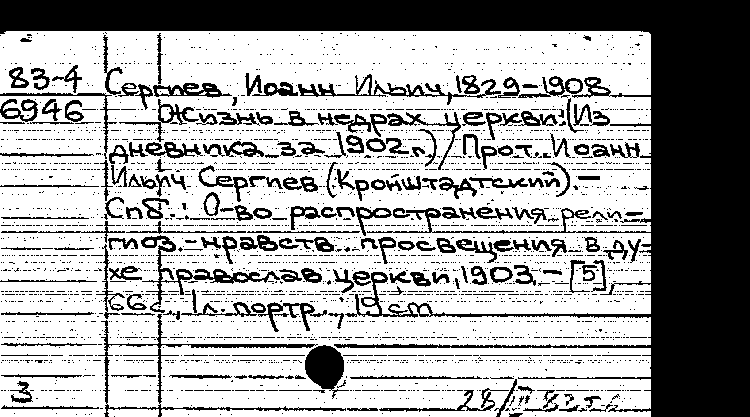 83-4 Сергиев, Иоанн Ильич, 1829-1908.
6946 Жизнь в недрах церкви: (Из
дневника за 1902 г.) / Прот. Иоанн
Ильич Сергиев (Кронштадтский). –
Спб.: О-во распространения рели-
гиоз.-нравств. просвещения в ду-
хе православ. церкви, 1903. – [5],
66 с., 1 л. портр.; 19 cm
3 28/III 83